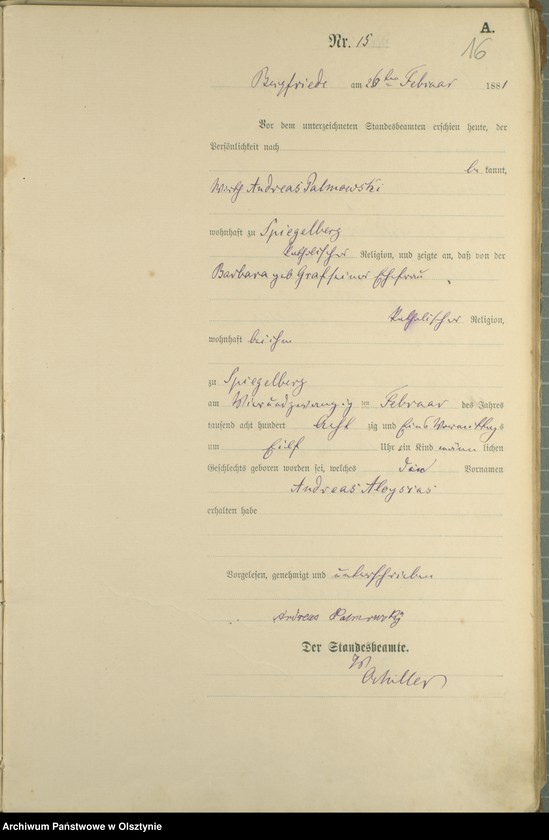 A.
16
Nr. 15
Bergfriede am 26ten Februar 1881
Vor dem unterzeichneten Standesbeamten erschien heute, der
Persönlichkeit nach
be kannt,
Wirth Andreas Palmowski
wohnhaft zu Spiegelberg
katholischer Religion, und zeigte an, daß von der
Barbara geb Graf seiner Ehefrau
katholischer Religion,
wohnhaft bei ihm
zu Spiegelberg
am Vierundzwanzig ten Februar des Jahres
tausend acht hundert Acht zig und Eins Vormittags
um Eilf Uhr ein Kind männ lichen
Geschlechts geboren worden sei, welches die Vornamen
Andreas Aloysius
erhalten habe
Vorgelesen, genehmigt und unterschrieben
Andreas Palmowsky
Der Standesbeamte.
Schiller
Archiwum Państwowe w Olsztynie